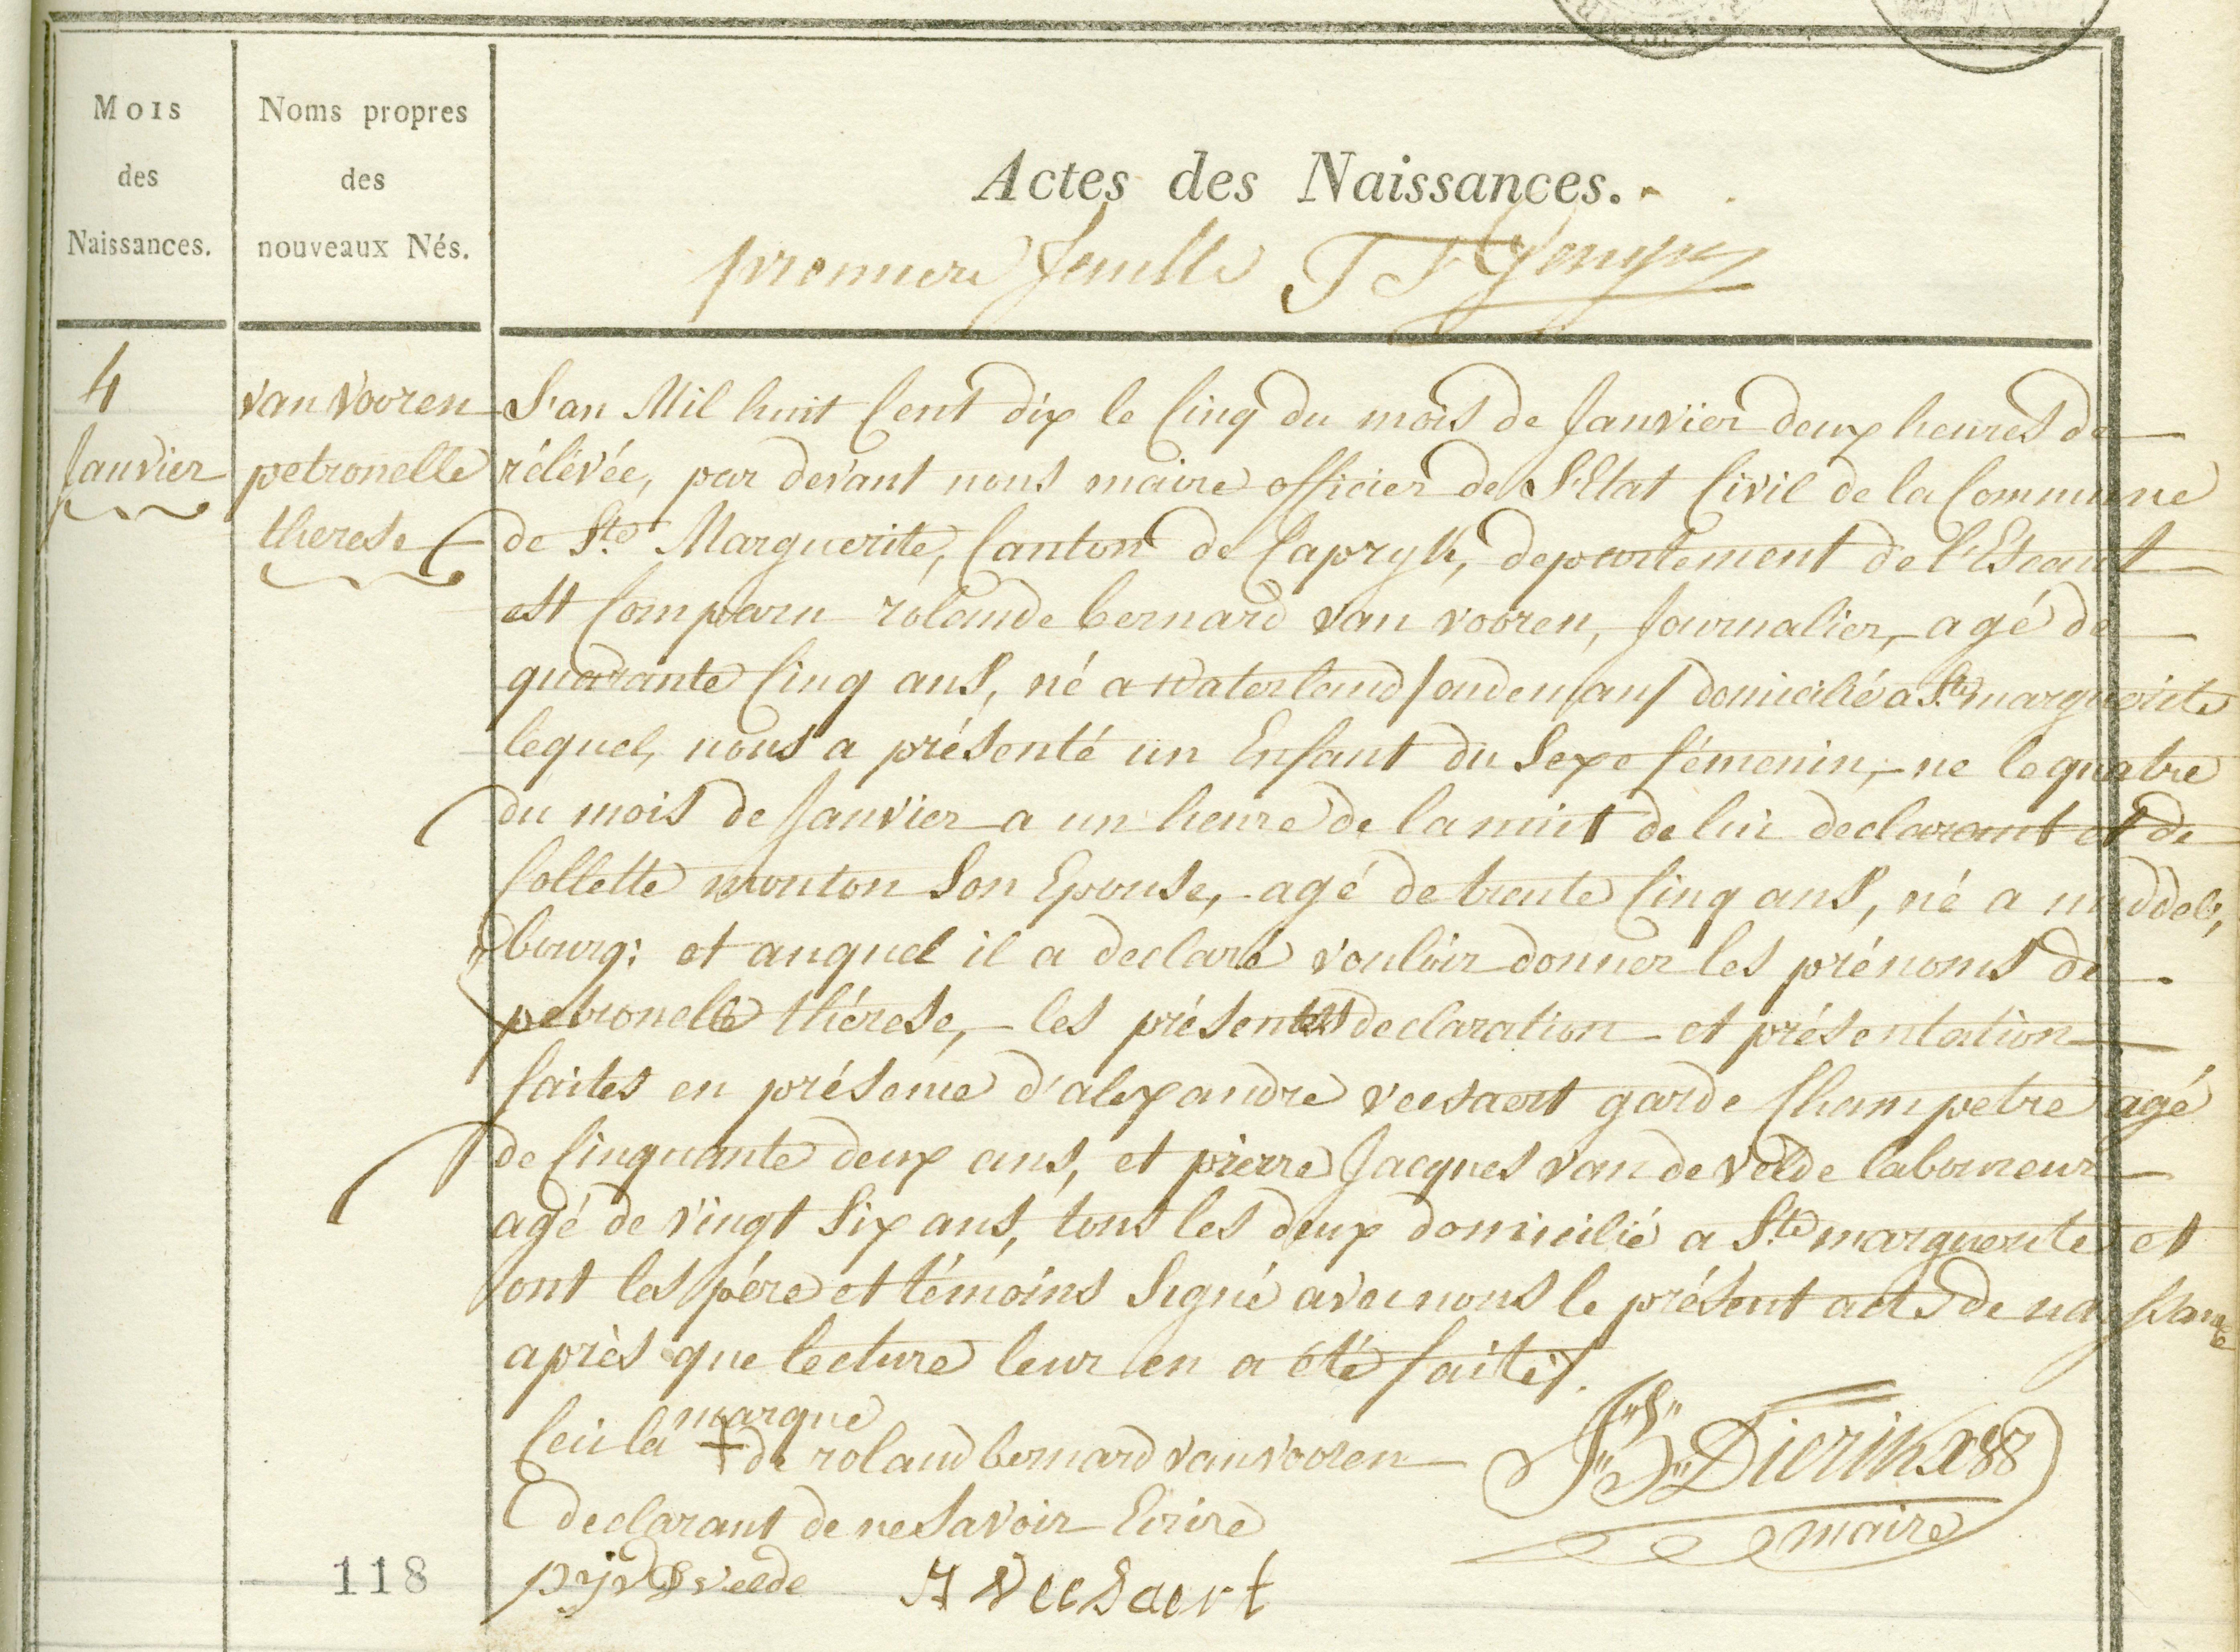 Mois
des
Naissances.
Noms propres
des
nouveaux Nés.
Actes des Naissances.
premiere feuille
4
Janvier
van vooren
petronelle
therese
L'an Mil huit Cent dix le Cinq du mois de Janvier deux heures de
rélévée, par devant nous maire officier de L'Etat Civil de la Commune
de Ste Marguerite, Canton de Capryk, departement de l'Escaut
est Comparu rolande bernard van vooren, Journalier, agé de
quarante Cinq ans, né a waterland / oudeman / domicilié a Ste marguerite
lequel, nous a présenté un Enfant du Sexe fémenin, ne le quatre
du mois de Janvier a un heure de la nuit de lui declarant et de
Collette mouton Son Epouse, agé de trente Cinq ans, né a middel,
bourg: et auquel il a declaré vouloir donner les prénoms de
petronelle thérese, les présentes declaration et présentation
faites en présence d'alexandre veesaert garde Champetre agé
de Cinquante deux ans, et pierre Jacques van de velde laboureur
agé de vingt Six ans, tous les deux domicilié a Ste marguerite et
ont les père et témoins Signé avec nous le présent acte de naissance
après que lecture leur en a été faite/.
Ceci la marque
+ de roland bernard van vooren
declarant de ne Savoir Ecrire
J.B. Dierinx
maire
pij vd velde
A Veesaert
118